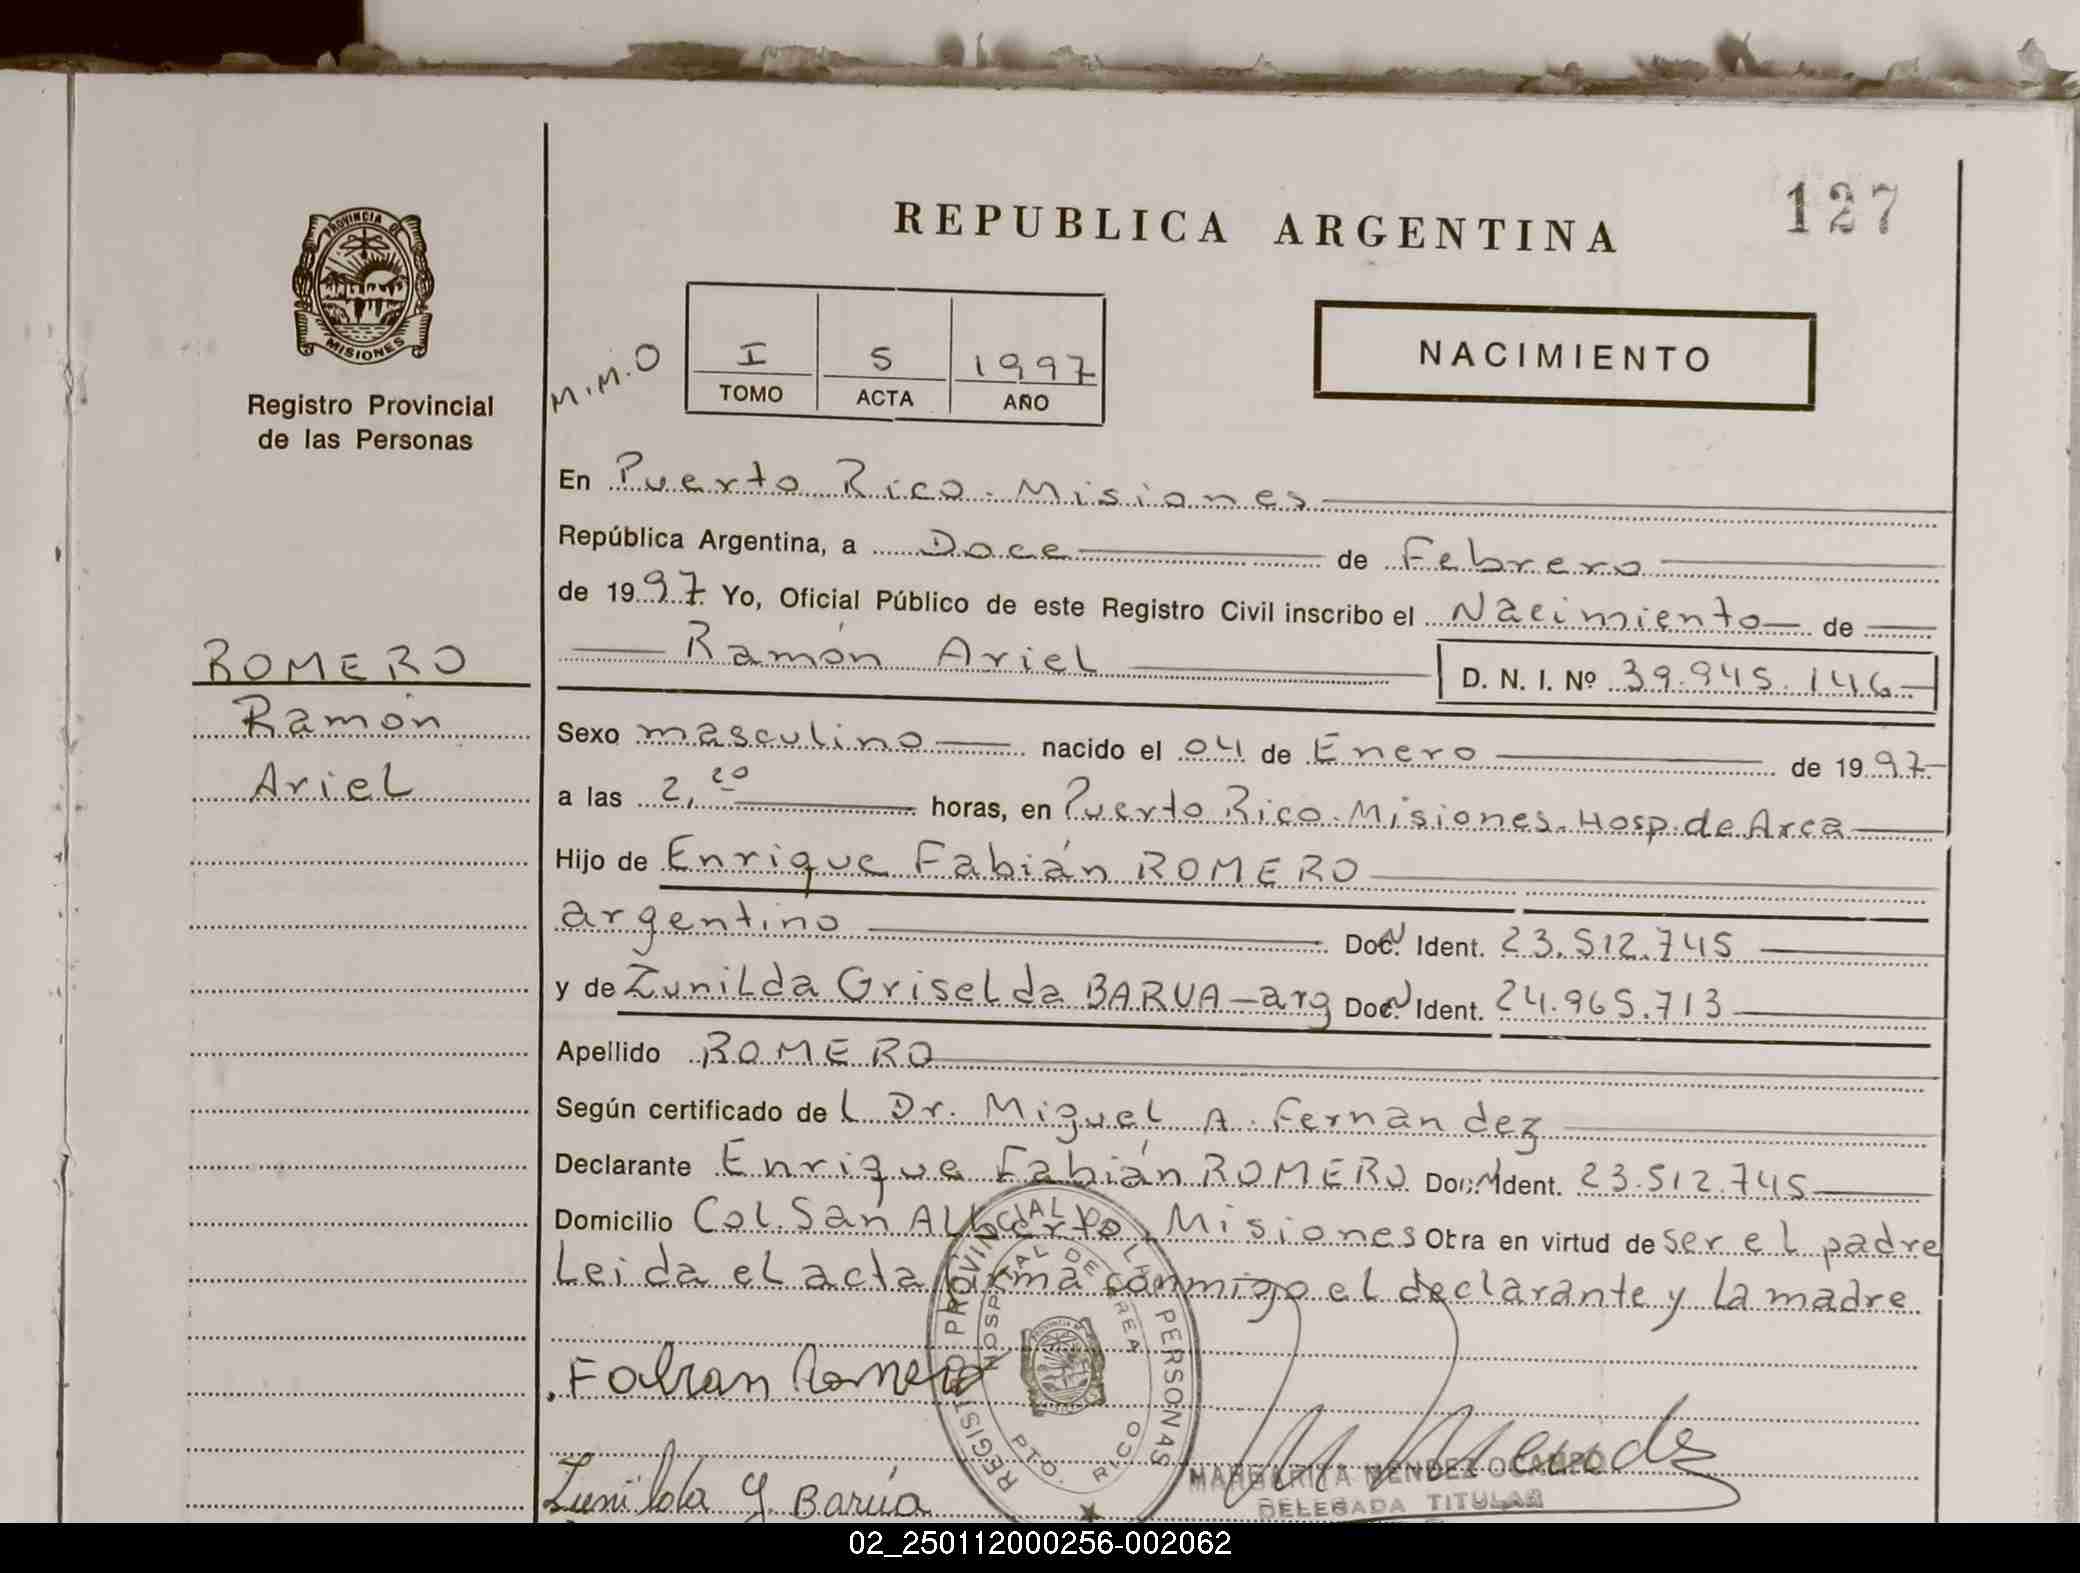 127
REPUBLICA ARGENTINA
PROVINCIA DE MISIONES
Registro Provincial
de las Personas
M.M.O
I 5 1997
TOMO ACTA AÑO
NACIMIENTO
En Puerto Rico. Misiones
República Argentina, a Doce de Febrero
de 1997 Yo, Oficial Público de este Registro Civil inscribo el Nacimiento de
Ramón Ariel D. N. I. Nº 39.945.146
ROMERO
Ramón
Ariel
Sexo masculino nacido el 04 de Enero de 1997
a las 2,20 horas, en Puerto Rico. Misiones. Hosp. de Area
Hijo de Enrique Fabián ROMERO
argentino Doc. Ident. 23.512.745
y de Zunilda Griselda BARUA - arg Doc. Ident. 24.965.713
Apellido ROMERO
Según certificado del Dr. Miguel A. Fernandez
Declarante Enrique Fabián ROMERO Doc. Ident. 23.512.745
Domicilio Col. San Alberto. Misiones Obra en virtud de ser el padre
Leida el acta firma conmigo el declarante y la madre
Fabian Romero
REGISTRO PROVINCIAL DE LAS PERSONAS
HOSPITAL DE AREA
PTO. RICO
M Mendez
MARGARITA MENDEZ OCAMPO
DELEGADA TITULAR
Zunilda G. Barúa
02_250112000256-002062